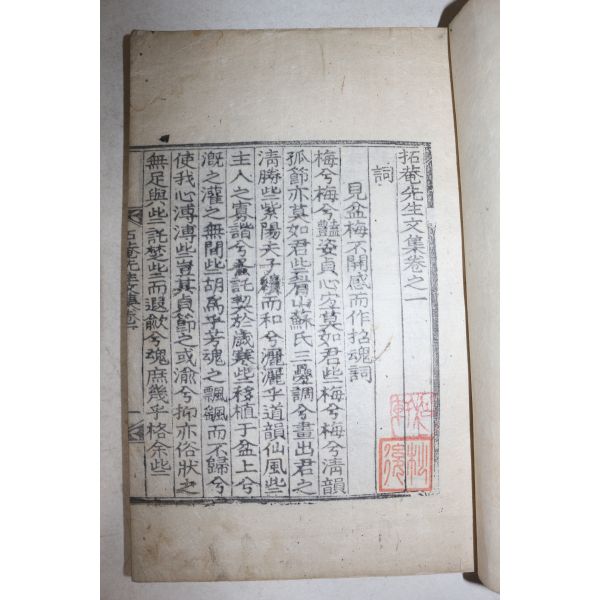 拓菴先生文集卷之一
詞
見盆梅不開感而作招魂詞
梅兮梅兮豔姿貞心室莫如君些梅兮梅兮淸韻
孤節亦莫如君些眉山蘇氏三疊調兮畫出君之
淸勝些紫陽夫子賡而和兮灑灑乎道韻仙風些
主人之寡諧兮託契於歲寒些移植于盆上兮
漑之灌之無間些胡爲乎芳魂之飄飄而不歸兮
使我心溥溥些豈其貞節之或渝兮抑亦俗狀之
無足與些託楚些而遐歈兮魂庶幾乎格余些
拓菴先生文集卷一
一